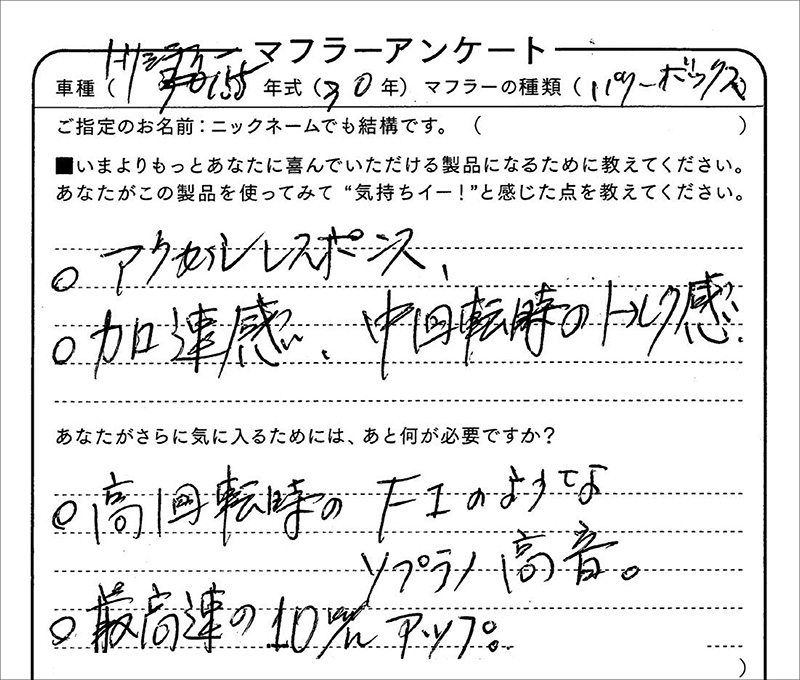 マフラーアンケート
車種( トリシティ155 年式(30年) マフラーの種類( パワーボックス)
ご指定のお名前:ニックネームでも結構です。( )
■いまよりもっとあなたに喜んでいただける製品になるために教えてください。
あなたがこの製品を使ってみて “気持ちイー!”と感じた点を教えてください。
○ アクセルレスポンス、
○ 加速感、中回転時のトルク感。
あなたがさらに気に入るためには、あと何が必要ですか?
○ 高回転時の F1のような
ソプラノ高音。
○ 最高速の10%アップ。
)